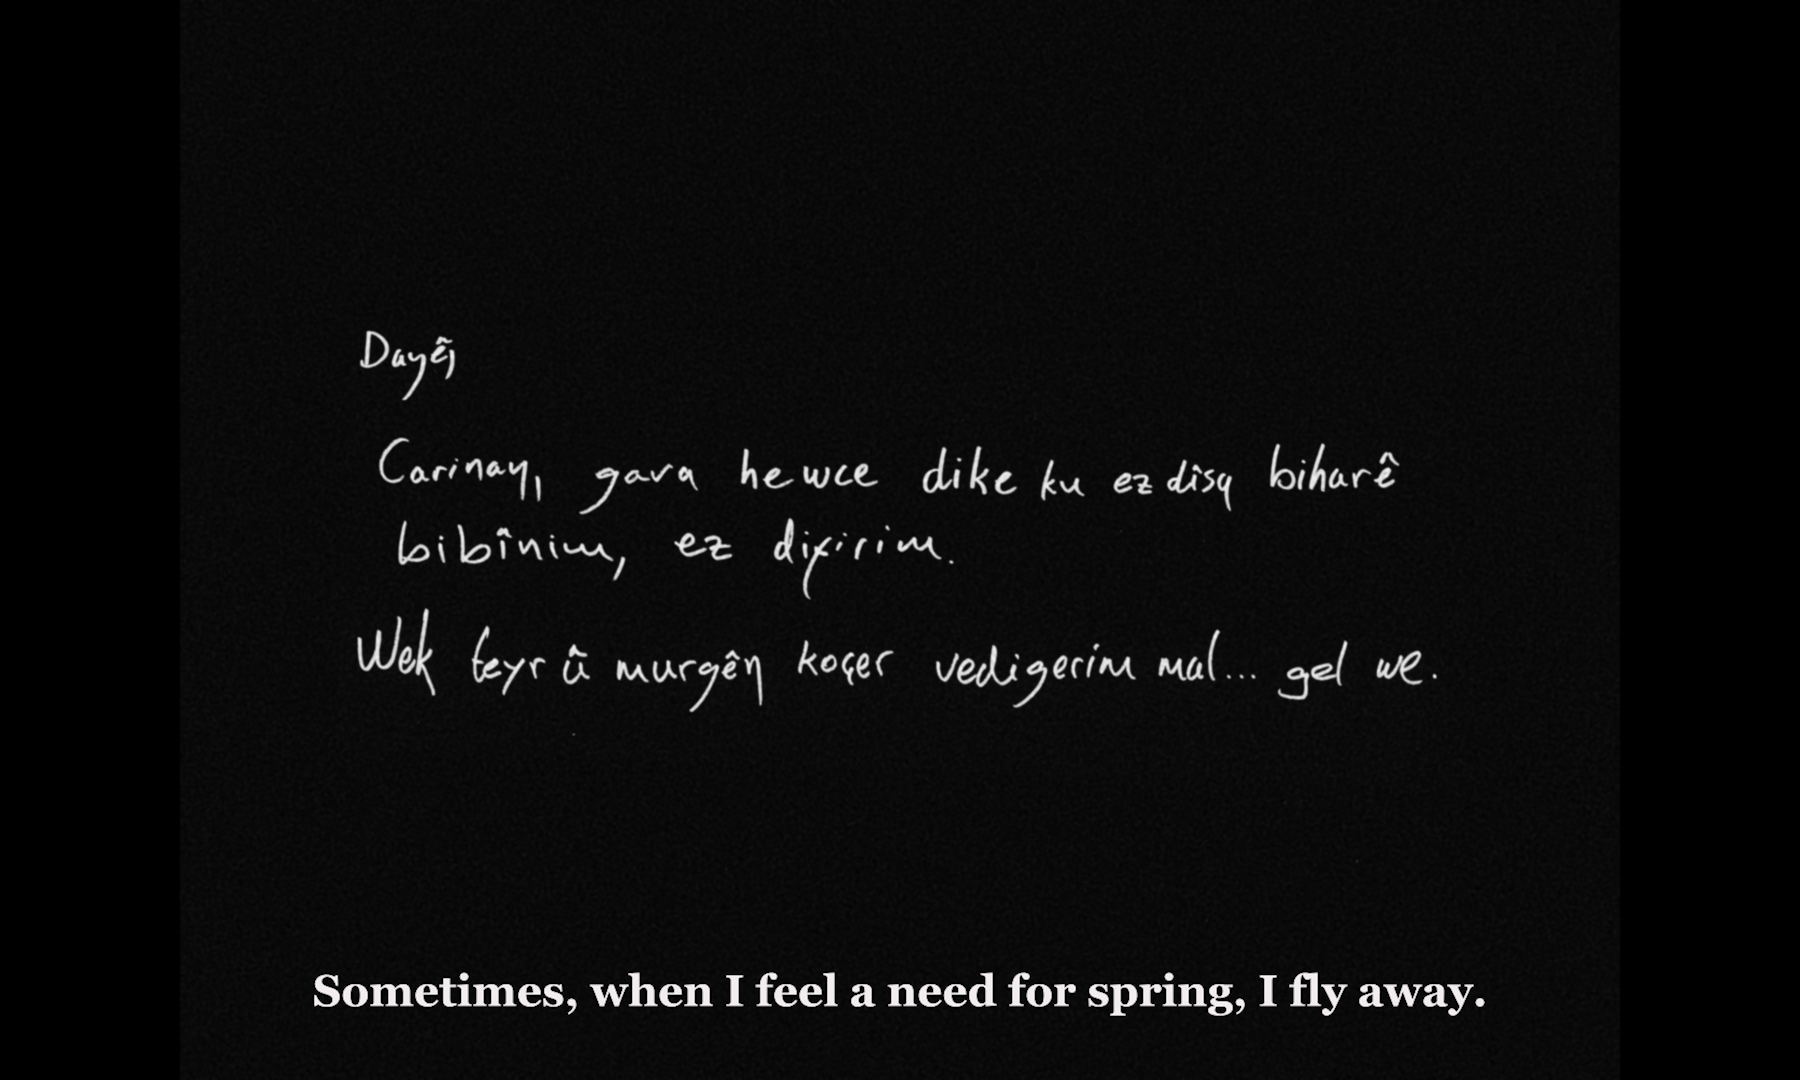 Dayê,
Carinan, gava hewce dike ku ez dîsa biharê
bibînim, ez difirim.
Wek teyr û murgên koçer vedigerim mal... gel we.
Sometimes, when I feel a need for spring, I fly away.